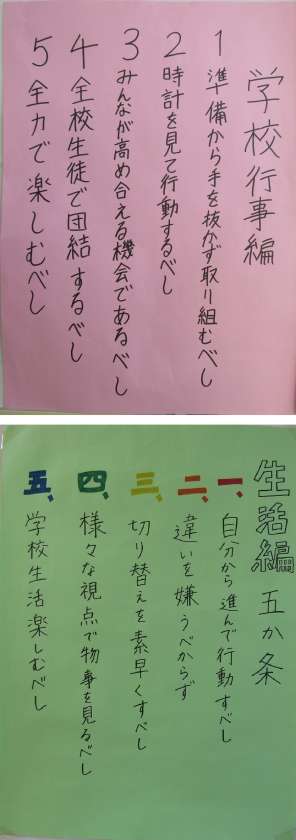 学校行事編
1 準備から手を抜かず取り組むべし
2 時計を見て行動するべし
3 みんなが高め合える機会であるべし
4 全校生徒で団結するべし
5 全力で楽しむべし
生活編 五か条
一、自分から進んで行動すべし
二、違いを嫌うべからず
三、切り替えを素早くすべし
四、様々な視点で物事を見るべし
五、学校生活楽しむべし